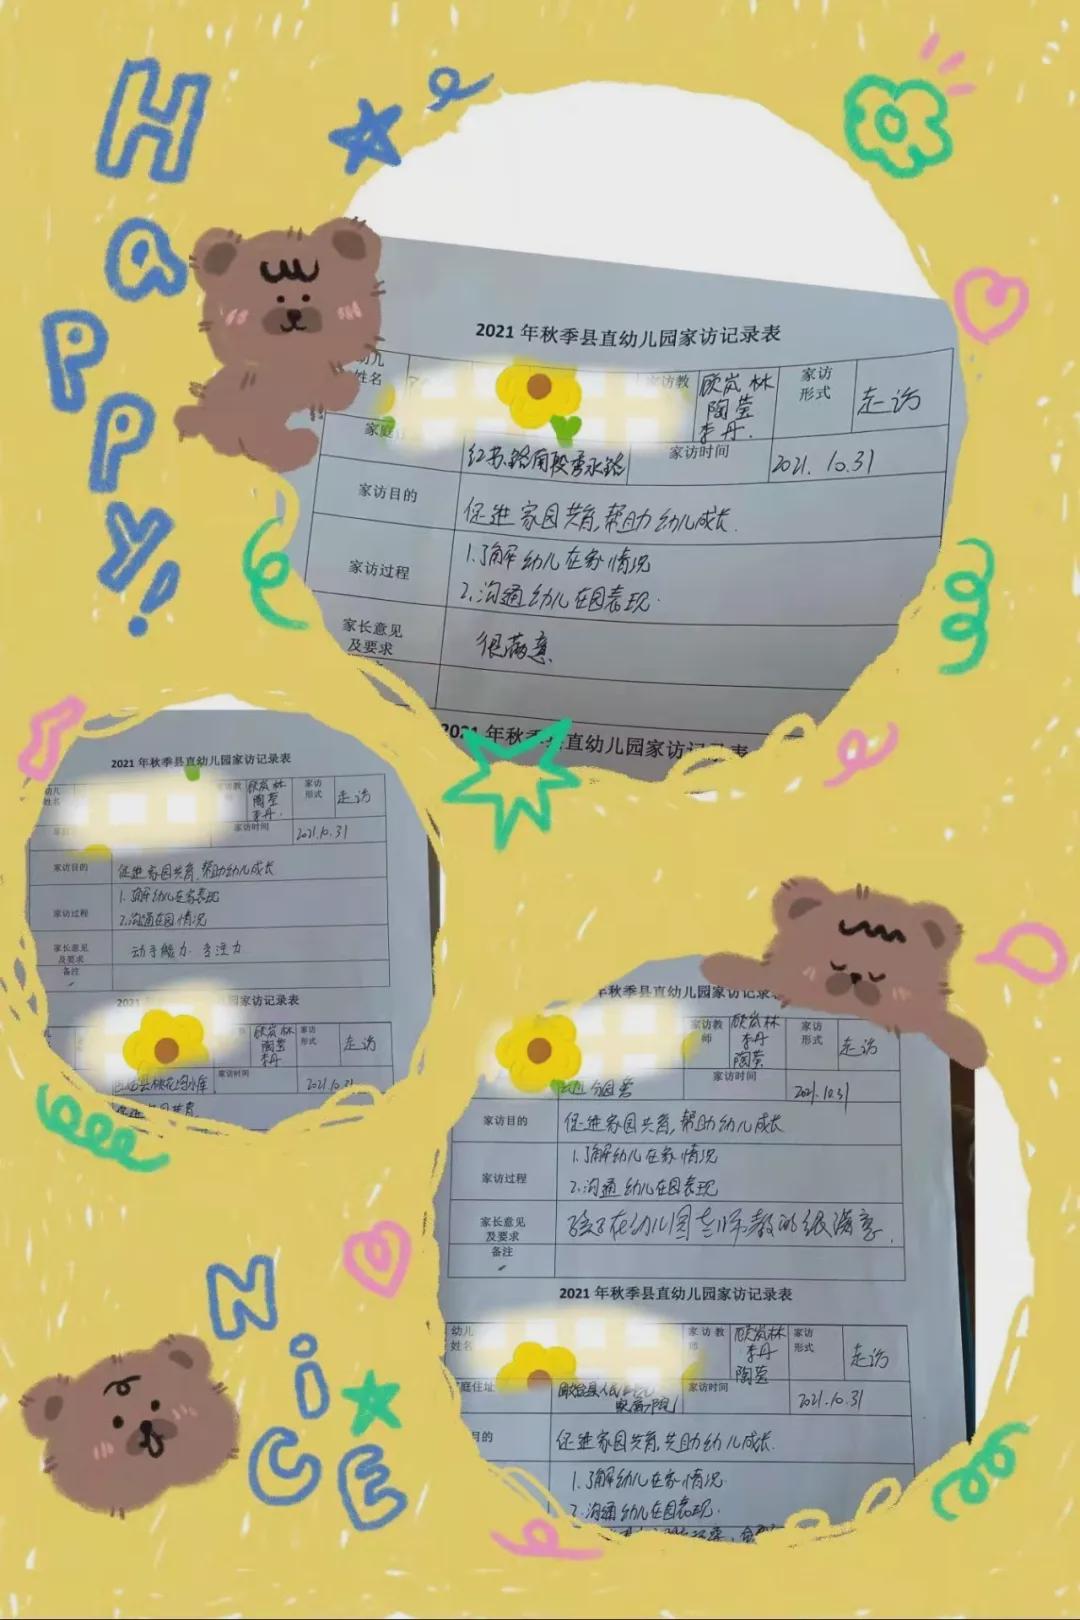 HaPPY!
2021 年秋季县直幼儿园家访记录表
姓名
家访教
顾岚林
陶莹
李丹.
家访
形式
走访
家庭
家访时间
2021. 10.31
家访目的
促进家园共育,帮助幼儿成长.
家访过程
1.了解幼儿在家情况
2.沟通幼儿在园表现.
家长意见
及要求
很满意
2021 年秋季县直幼儿园家访记录表
2021 年秋季县直幼儿园家访记录表
幼儿
姓名
顾岚林
陶莹
李丹.
家访
形式
走访
家访时间
2021.10.31
家访目的
促进家园共育,帮助幼儿成长
家访过程
1. 了解幼儿在家表现
2.沟通在园情况
家长意见
及要求
动手能力. 专注力
备注
园家访记录表
顾岚林
陶莹
李丹
家访
形式
走访
家访时间
2021.10.31
年秋季县直幼儿园家访记录
家访教
师
顾岚林
李丹
陶莹
家访
形式
走访
家访时间
2021.10.31
家访目的
促进家园共育,帮助幼儿成长
家访过程
1.了解幼儿在家情况
2.沟通幼儿在园表现
家长意见
及要求
孩子在幼儿园老师教的很满意.
备注
2021 年秋季县直幼儿园家访记录表
幼儿
姓名
家访教
师
顾岚林
李丹
陶莹
家访
形式
走访
庭住址
家访时间
2021.10.31
目的
促进家园共育,共助幼儿成长.
1.了解幼儿在家情况
2.沟通幼儿在园表现.
NiCE